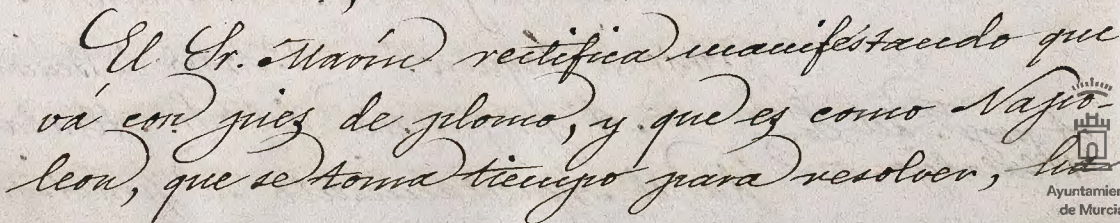 El Sr. Marín rectifica manifestando que
vá con pies de plomo, y que es como Napo-
leon, que se toma tiempo para resolver, ha
Ayuntamien
de Murcia